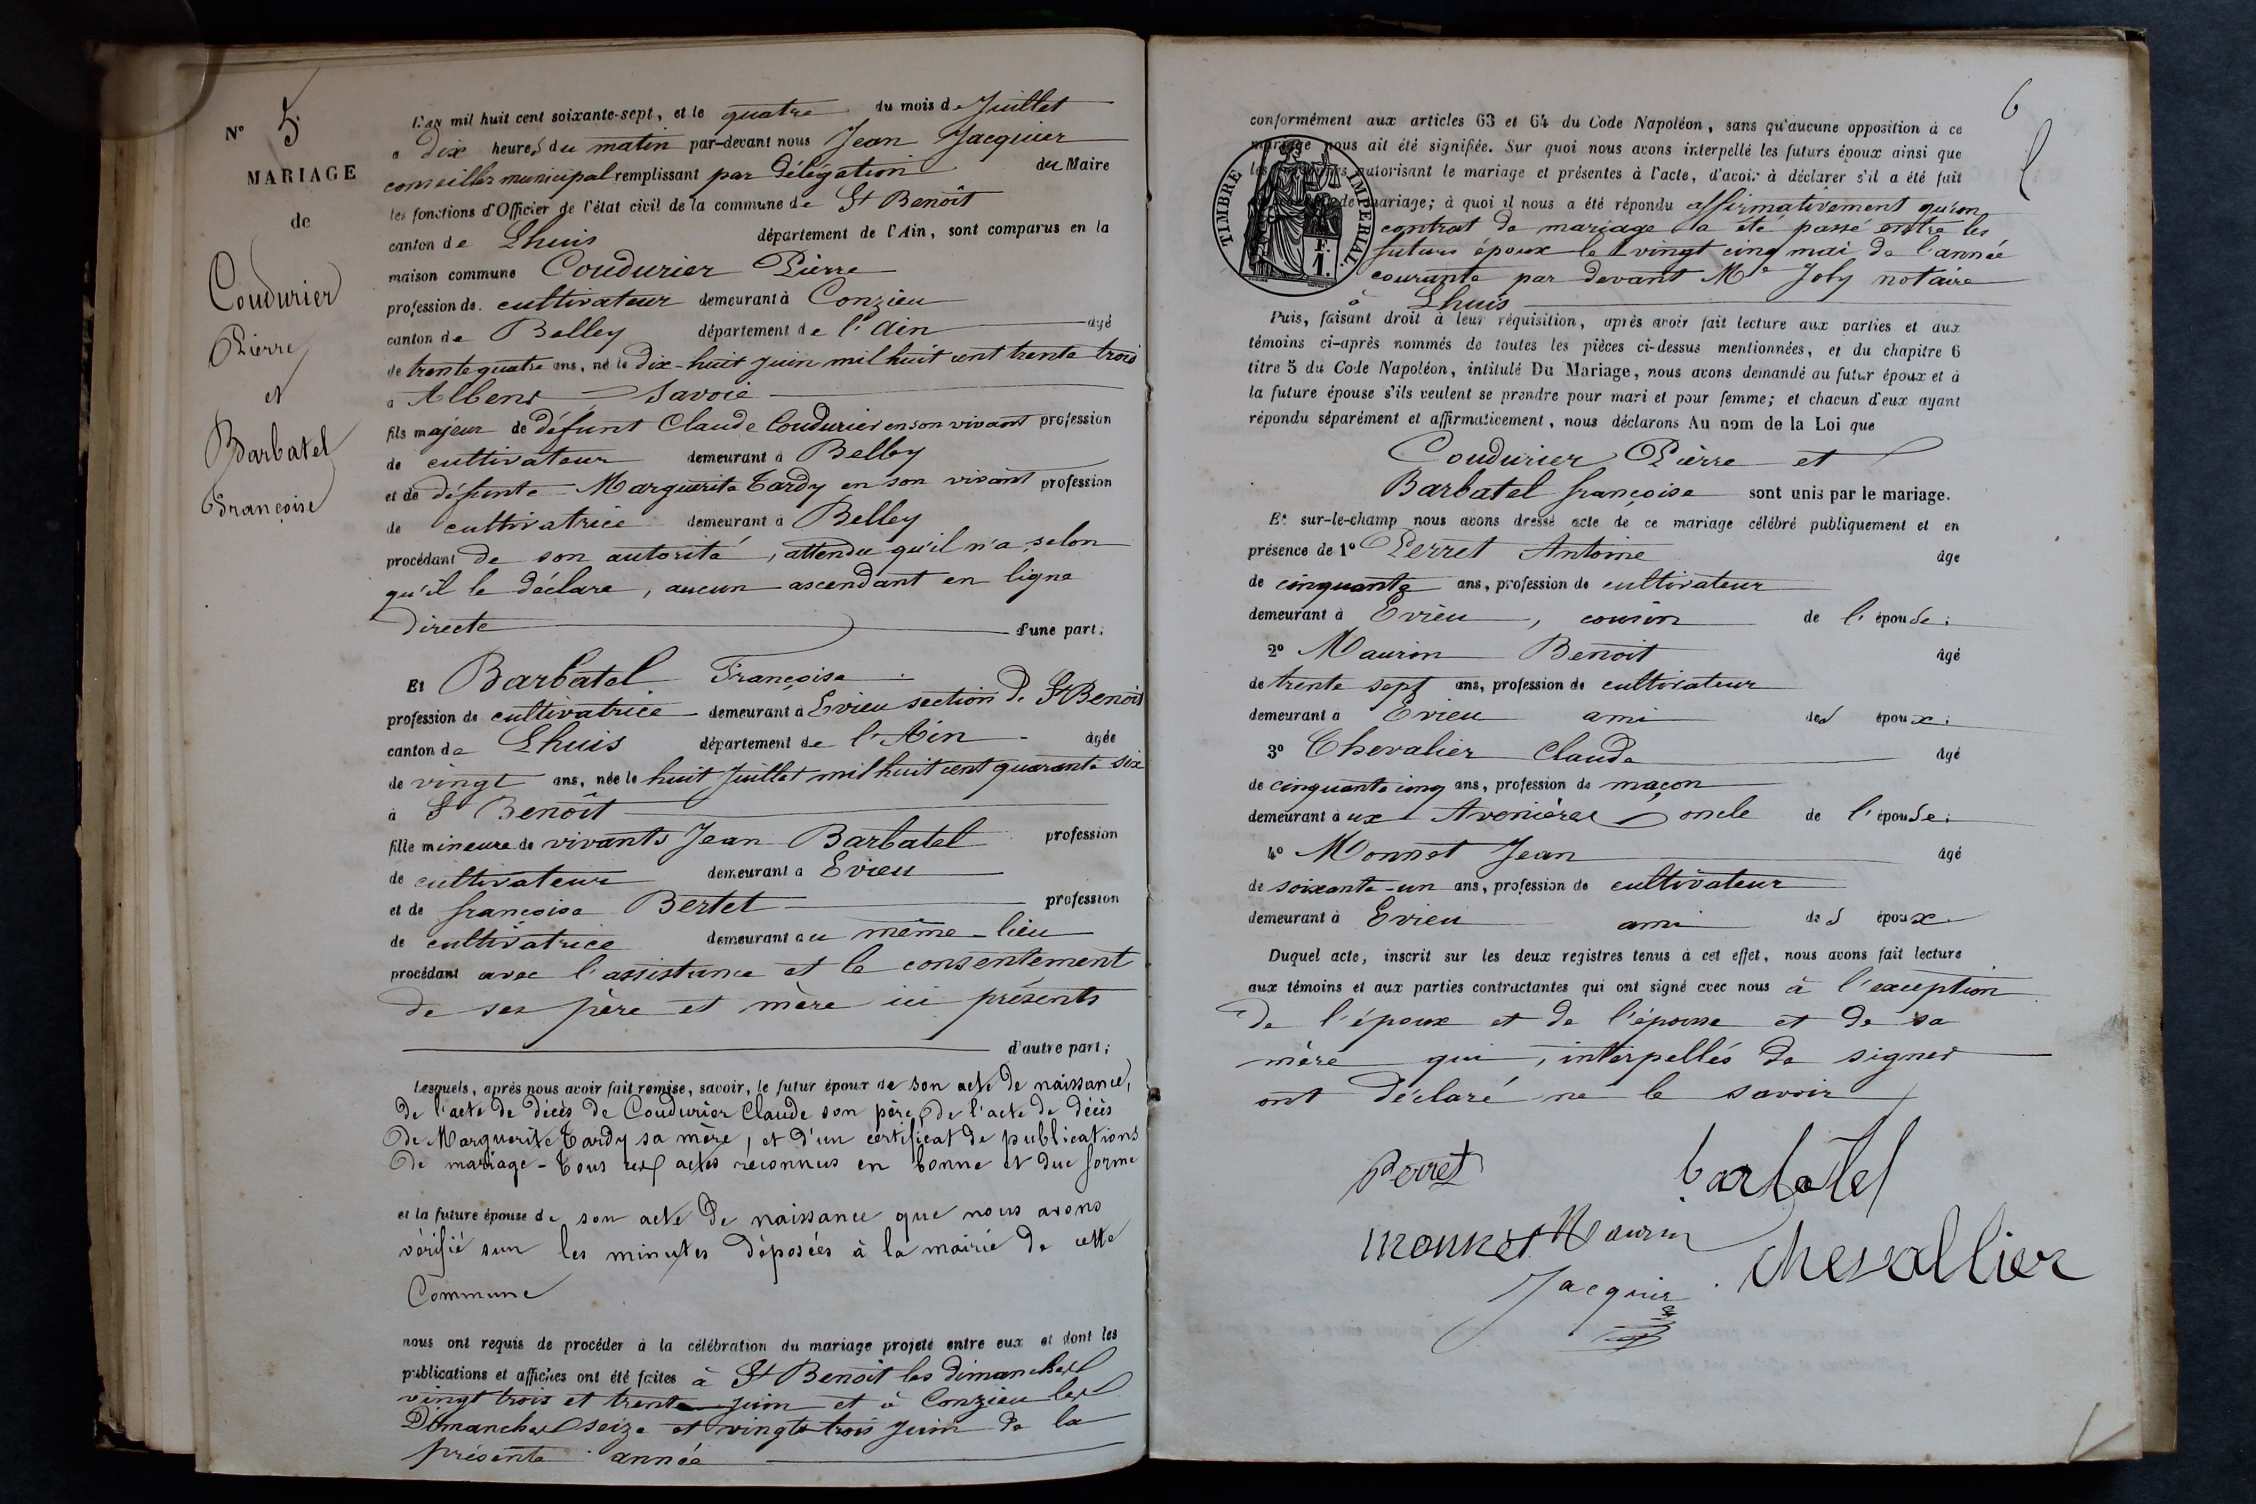 N° 5
MARIAGE
de
Coudurier
Pierre
et
Barbatel
Françoise
L'an mil huit cent soixante-sept, et le quatre du mois de Juillet
à dix heures du matin par-devant nous Jean Jacquier
conseiller municipal remplissant par délégation du Maire
les fonctions d'Officier de l'état civil de la commune de St Benoît
canton de Lhuis département de l'Ain, sont comparus en la
maison commune Coudurier Pierre
profession de cultivateur demeurant à Conzieu
canton de Belley département de l'Ain âgé
de trente quatre ans, né le dix-huit Juin mil huit cent trente trois
à Albens Savoie
fils majeur de défunt Claude Coudurier en son vivant profession
de cultivateur demeurant à Belley
et de défunte Marguerite Tardy en son vivant profession
de cultivatrice demeurant à Belley
procédant de son autorité, attendu qu'il n'a, selon
qu'il le déclare, aucun ascendant en ligne
directe d'une part;
Et Barbatel Françoise
profession de cultivatrice demeurant à Evieu section de St Benoît
canton de Lhuis département de l'Ain âgée
de vingt ans, née le huit Juillet mil huit cent quarante six
à St Benoît
fille mineure de vivants Jean Barbatel profession
de cultivateur demeurant à Evieu
et de françoise Bertet profession
de cultivatrice demeurant au même lieu
procédant avec l'assistance et le consentement
de ses père et mère ici présents
d'autre part;
Lesquels, après nous avoir fait remise, savoir, le futur époux de son acte de naissance,
de l'acte de décès de Coudurier Claude son père, de l'acte de décès
de Marguerite Tardy sa mère, et d'un certificat de publications
de mariage - Tous ces actes reconnus en bonne et due forme
et la future épouse de son acte de naissance que nous avons
vérifié sur les minutes déposées à la mairie de cette
Commune
nous ont requis de procéder à la célébration du mariage projeté entre eux et dont les
publications et affiches ont été faites à St Benoît les dimanches
vingt trois et trente juin et à Conzieu les
Dimanches seize et vingt trois Juin de la
présente année
6
conformément aux articles 63 et 64 du Code Napoléon, sans qu'aucune opposition à ce
mariage nous ait été signifiée. Sur quoi nous avons interpellé les futurs époux ainsi que
les autorisant le mariage et présentes à l'acte, d'avoir à déclarer s'il a été fait
de mariage; à quoi il nous a été répondu affirmativement qu'un
contrat de mariage a été passé entre les
futurs époux le vingt cinq mai de l'année
courante par devant Me Joly notaire
à Lhuis
TIMBRE IMPERIAL
F.
1.
Puis, faisant droit à leur réquisition, après avoir fait lecture aux parties et aux
témoins ci-après nommés de toutes les pièces ci-dessus mentionnées, et du chapitre 6
titre 5 du Code Napoléon, intitulé Du Mariage, nous avons demandé au futur époux et à
la future épouse s'ils veulent se prendre pour mari et pour femme; et chacun d'eux ayant
répondu séparément et affirmativement, nous déclarons Au nom de la Loi que
Coudurier Pierre et
Barbatel françoise sont unis par le mariage.
Et sur-le-champ nous avons dressé acte de ce mariage célébré publiquement et en
présence de 1° Perret Antoine âge
de cinquante ans, profession de cultivateur
demeurant à Evieu, cousin de l'épouse;
2° Mauron Benoit âgé
de trente sept ans, profession de cultivateur
demeurant à Evieu ami des époux;
3° Chevalier Claude âgé
de cinquante cinq ans, profession de maçon
demeurant à ux Avenières oncle de l'épouse;
4° Monnet Jean âgé
de soixante-un ans, profession de cultivateur
demeurant à Evieu ami des époux
Duquel acte, inscrit sur les deux registres tenus à cet effet, nous avons fait lecture
aux témoins et aux parties contractantes qui ont signé avec nous à l'exception
de l'époux et de l'épouse et de sa
mère qui, interpellés de signer
ont déclaré ne le savoir
Perret barbatel
monnet Mauron
chevallier
Jacquier